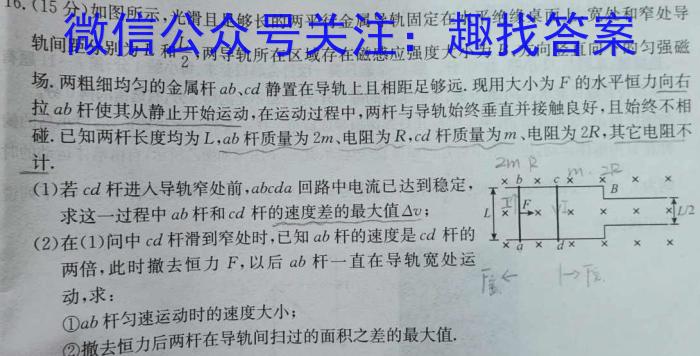 16.(15分)如图所示,光滑且足够长的两平行金属导轨固定在水平绝缘桌面上,宽处和窄处导
微信公众号关注：趣找答案
轨间距分别为 和 2 ,两导轨所在区域存在磁感应强度大小为 方向 直向 的匀强磁
场.两粗细均匀的金属杆ab、cd静置在导轨上且相距足够远.现用大小为F的水平恒力向右
拉ab杆使其从静止开始运动,在运动过程中,两杆与导轨始终垂直并接触良好,且始终不相
碰.已知两杆长度均为L,ab杆质量为2m、电阻为R,cd杆质量为m、电阻为2R,其它电阻不
计.
(1)若cd杆进入导轨窄处前,abcda回路中电流已达到稳定,
求这一过程中ab杆和cd杆的速度差的最大值Δv;
(2)在(1)问中cd杆滑到窄处时,已知ab杆的速度是cd杆的
两倍,此时撤去恒力F,以后ab杆一直在导轨宽处运
动,求:
①ab杆匀速运动时的速度大小;
②撤去恒力后两杆在导轨间扫过的面积之差的最大值.
2m R m 2R
b c B
L F L/2
a d